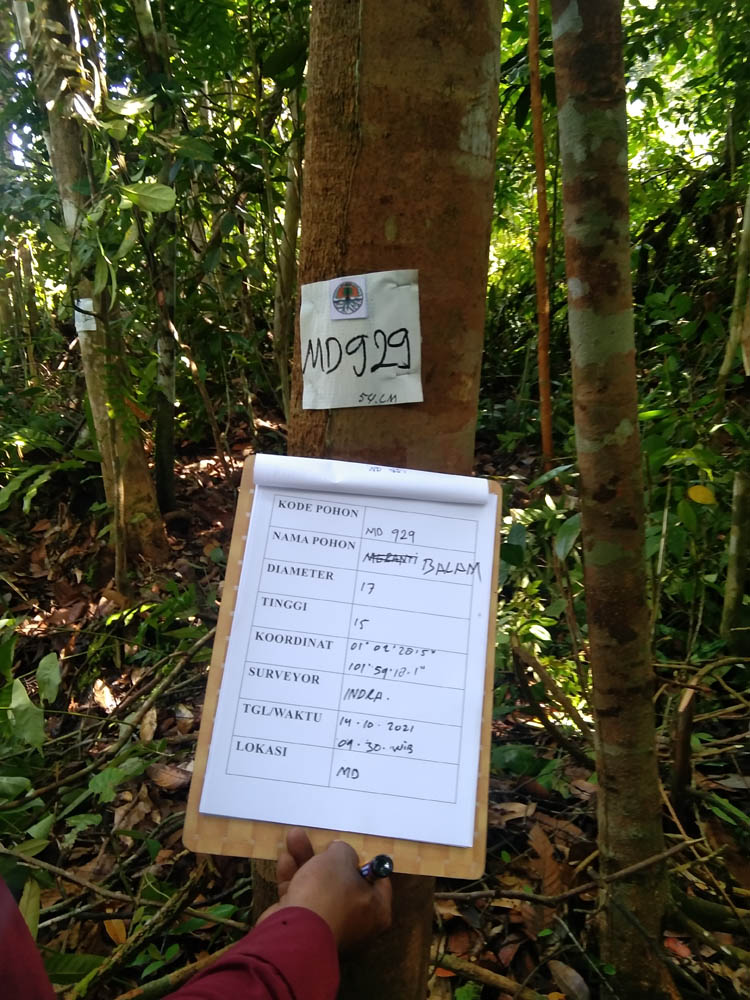 MD929
54.CM
KODE POHON MD 929
NAMA POHON MERANTI BALAM
DIAMETER 17
TINGGI 15
KOORDINAT 01° 02' 20.5"
101° 59' 18.1"
SURVEYOR INDRA.
TGL/WAKTU 14.10.2021
09.30. WIB
LOKASI MD